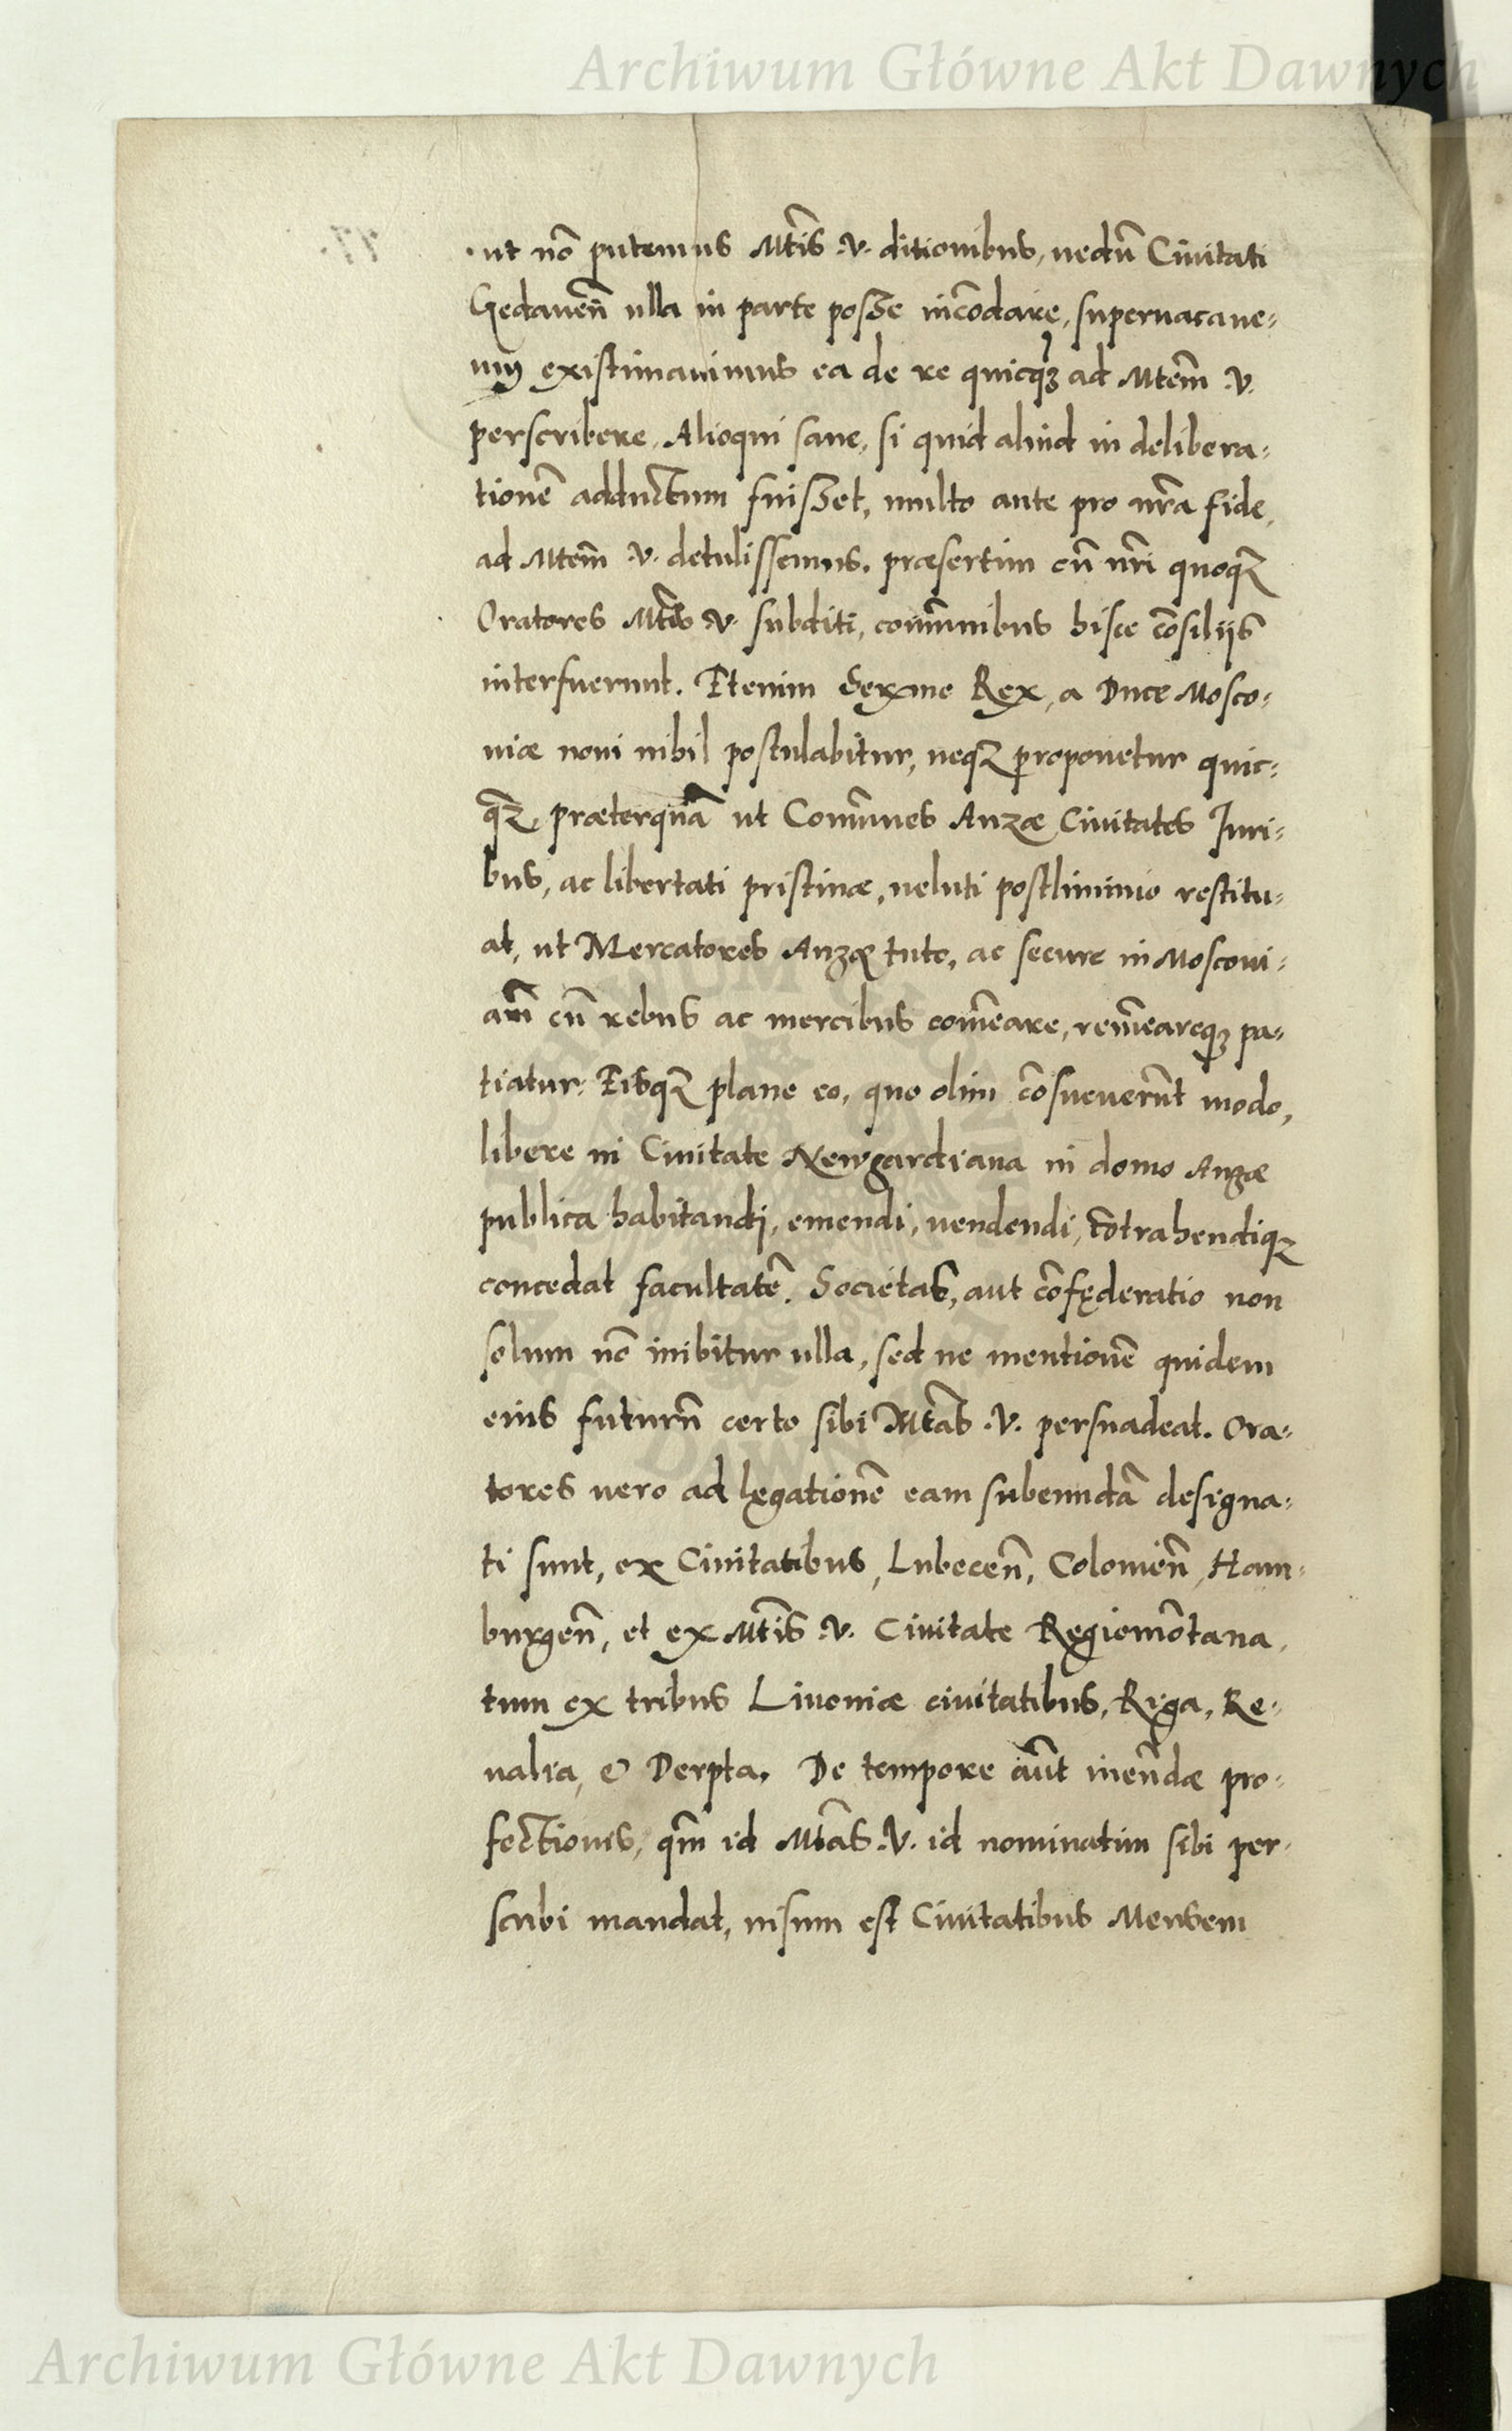 Archiwum Główne Akt Dawnych
ut nō putemus Mtīs .V. ditionibus, nedū Ciuitati
Gedaneñ ulla in parte posse incōdare, superuacane-
um existimauimus ea de re quicq̄ ad Mtem̄ .V.
perscribere. Alioqui sane, si quid aliud in delibera-
tionē adductum fuisset, multo ante pro nr̄a fide,
ad Mtem̄ .V. detulissemus. præsertim cū nr̄i quoqz
Oratores Mtīs .V. subditi, com̄unibus hisce cōsilijs
interfuerunt. Etenim Serme Rex, a Duce Mosco-
uiæ noui nihil postulabitur, neqz proponetur quic-
q̄z, præterquā ut Com̄unes Anzæ Ciuitates Juri-
bus, ac libertati pristinæ, ueluti postliminio restitu-
at, ut Mercatores Anzæ tuto, ac secure in Moscoui-
am̄ cū rebus ac mercibus com̄eare, rem̄eareqz pa-
tiatur: Eisqz plane eo, quo olim cōsueuerūt modo,
libere in Ciuitate Newgardiana in domo Anzæ
publica habitandi, emendi, uendendi, cōtrahendiqz
concedat facultatē. Societas, aut cōfęderatio non
solum nō inibitur ulla, sed ne mentionē quidem
eius futurū certo sibi Mtās .V. persuadeat. Ora-
tores uero ad legationē eam subeundā designa-
ti sunt, ex Ciuitatibus, Lubeceñ, Colonieñ, Ham-
burgeñ, et ex Mtīs .V. Ciuitate Regiomōtana,
tum ex tribus Liuoniæ ciuitatibus, Riga, Re-
ualia, & Derpta. De tempore aūt ineūdæ pro-
fectionis, qm̄ id Mtās .V. id nominatim sibi per-
scribi mandat, uisum est Ciuitatibus Mensem
Archiwum Główne Akt Dawnych